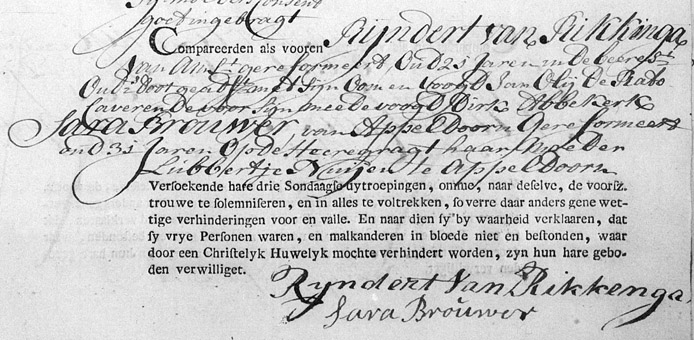 goetingebragt
Compareerden als vooren Rijndert van Rikkinga
van Amst gereformeert Oud 25 Jaren in de
Oud's doot geadst met sijn Oom en voogd Jan Olij De Rato
Caverende voor sijn meede voogd Dirk Abbekerk
Sara Brouwer, van Appeldoorn Gereformeert
oud 31 Jaren Op de Heeregragt haar Moeder
Lubbertje te Appeldoorn
Versoekende hare drie Sondaagse uytroepingen, omme, naar deselve, de voorsz.
trouwe te solemniseren, en in alles te voltrekken, so verre daar anders gene wet-
tige verhinderingen voor en valle. En naar dien sy by waarheid verklaaren, dat
sy vrye Personen waren, en malkanderen in bloede niet en bestonden, waar
door een Christelyk Huwelyk mochte verhindert worden, zyn hun hare gebo-
den verwilliget.
Ryndert Van Rikkenga
Sara Brouwer